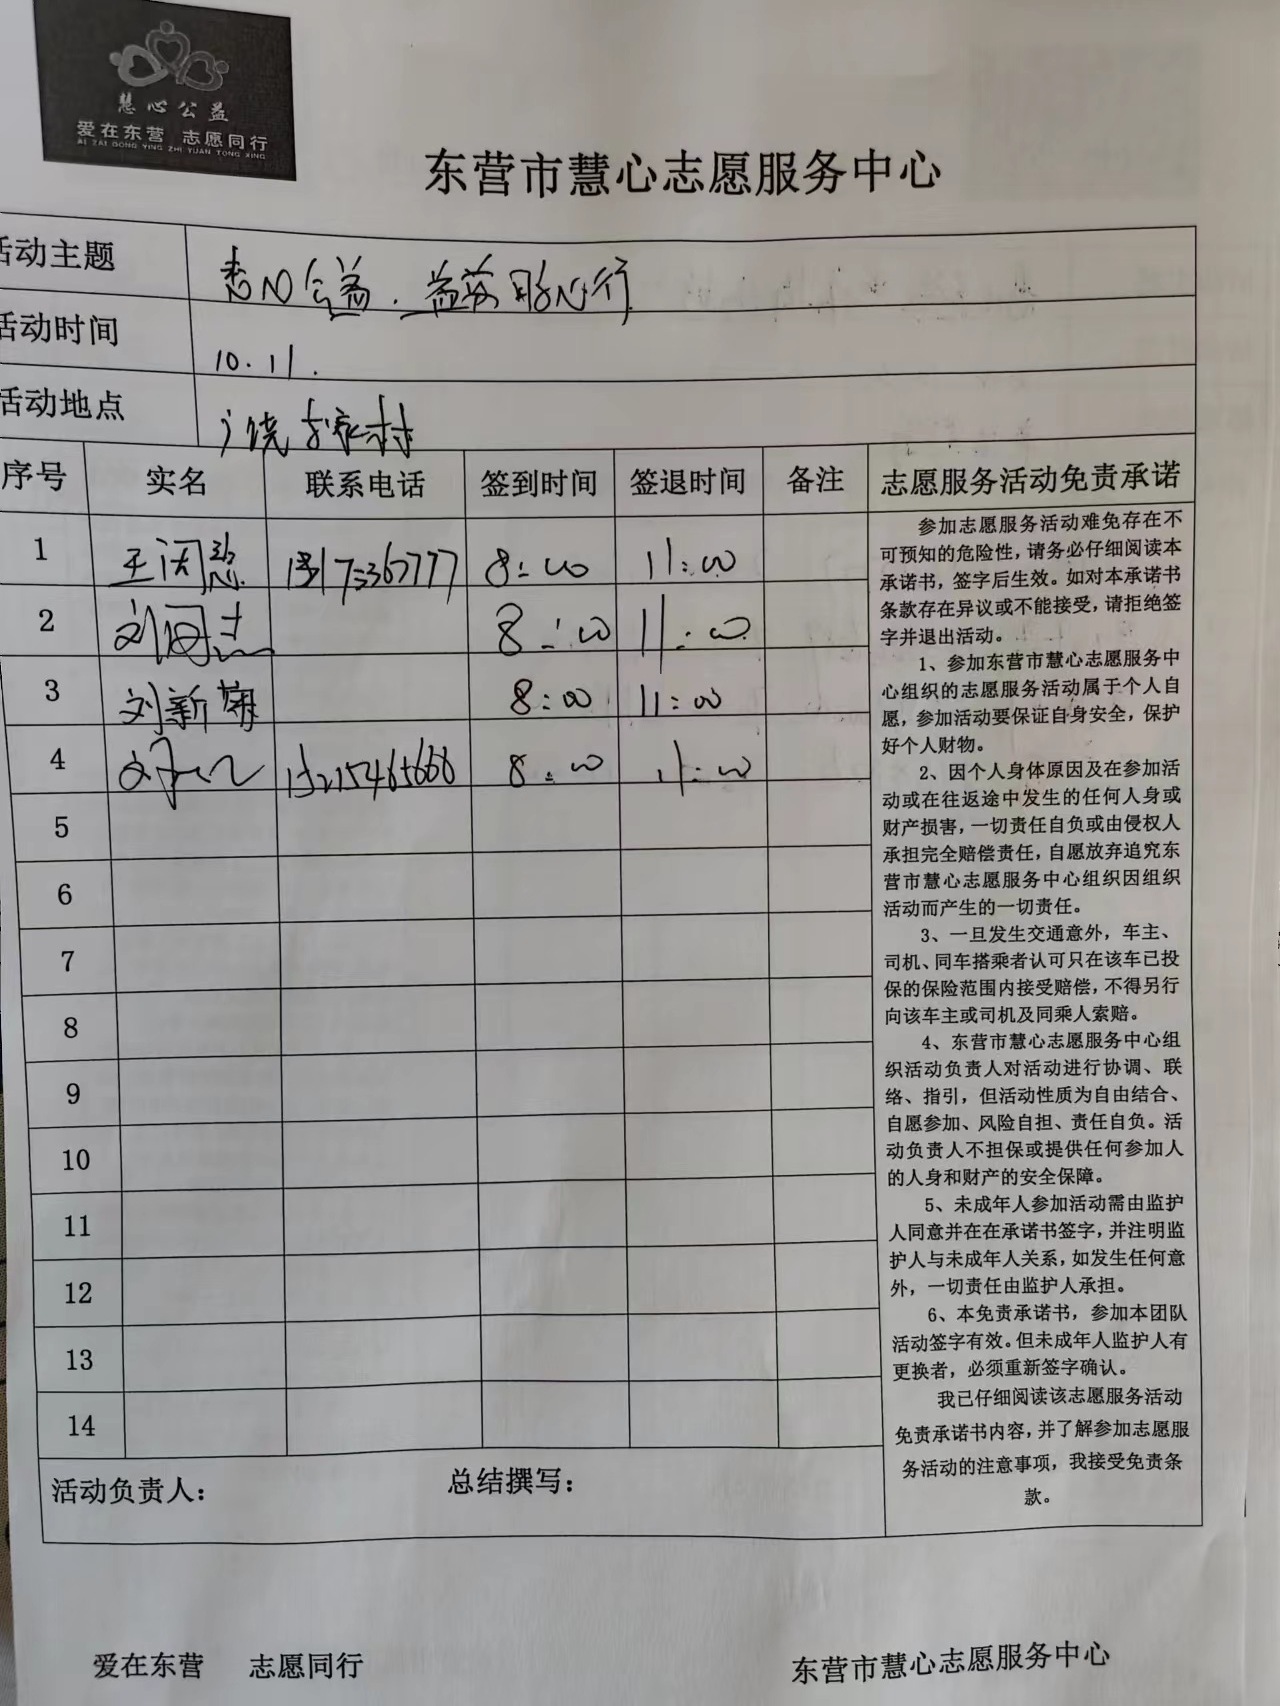 慧心公益
爱在东营 志愿同行
AI ZAI DONG YING ZHI YUAN TONG XING
东营市慧心志愿服务中心
活动主题 公益.益 同心行
活动时间 10.11.
活动地点 广饶 村
序号 实名 联系电话 签到时间 签退时间 备注 志愿服务活动免责承诺
1 王 8:00 11:00
2 刘 8:00 11:00
3 刘新 8:00 11:00
4 8:00 11:00
5
6
7
8
9
10
11
12
13
14
参加志愿服务活动难免存在不
可预知的危险性，请务必仔细阅读本
承诺书，签字后生效。如对本承诺书
条款存在异议或不能接受，请拒绝签
字并退出活动。
1、参加东营市慧心志愿服务中
心组织的志愿服务活动属于个人自
愿，参加活动要保证自身安全，保护
好个人财物。
2、因个人身体原因及在参加活
动或在往返途中发生的任何人身或
财产损害，一切责任自负或由侵权人
承担完全赔偿责任，自愿放弃追究东
营市慧心志愿服务中心组织因组织
活动而产生的一切责任。
3、一旦发生交通意外，车主、
司机、同车搭乘者认可只在该车已投
保的保险范围内接受赔偿，不得另行
向该车主或司机及同乘人索赔。
4、东营市慧心志愿服务中心组
织活动负责人对活动进行协调、联
络、指引，但活动性质为自由结合、
自愿参加、风险自担、责任自负。活
动负责人不担保或提供任何参加人
的人身和财产的安全保障。
5、未成年人参加活动需由监护
人同意并在在承诺书签字，并注明监
护人与未成年人关系，如发生任何意
外，一切责任由监护人承担。
6、本免责承诺书，参加本团队
活动签字有效。但未成年人监护人有
更换者，必须重新签字确认。
我已仔细阅读该志愿服务活动
免责承诺书内容，并了解参加志愿服
务活动的注意事项，我接受免责条
款。
活动负责人： 总结撰写：
爱在东营 志愿同行 东营市慧心志愿服务中心